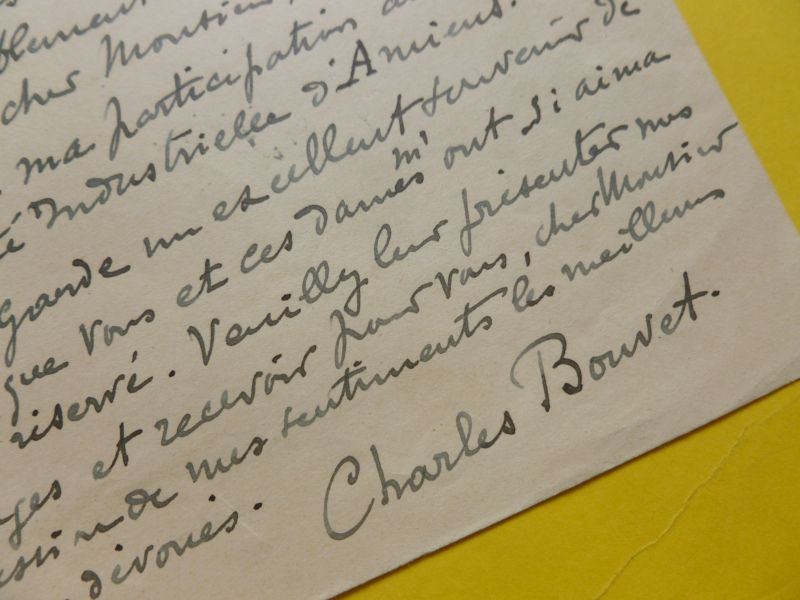 cher Monsieur,
ma participation
Industrielle d'Amiens.
Garde un excellent souvenir de
que vous et ces dames m'ont si aima
réservé. Veuillez leur présenter mes
ges et recevoir pour vous, cher Monsieur
de mes sentiments les meilleurs
dévoués.
Charles Bouvet.